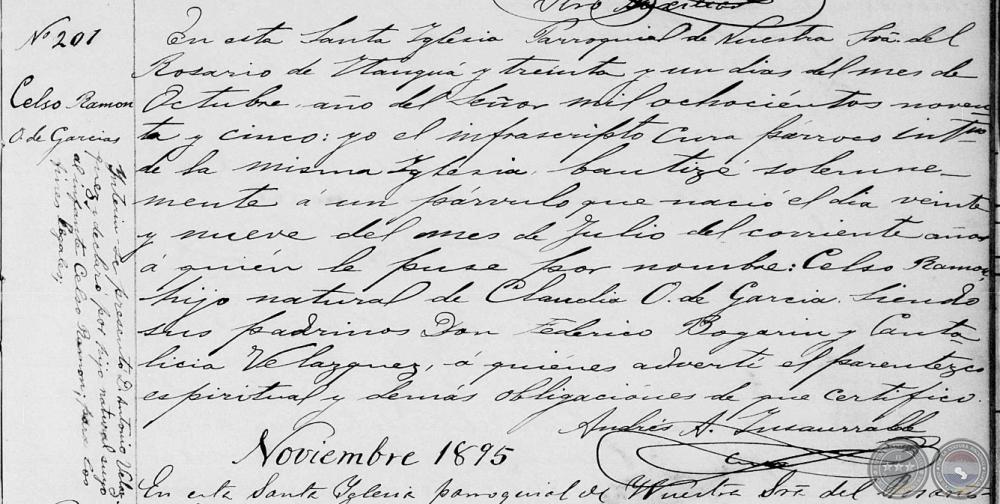 Nº 201
Celso Ramon
O. de Garcias
Interin se presentó D. Antonio Velaz-
quez y declaró por hijo natural suyo
al infante Celso Ramon, para los
fines legales,
En esta Santa Yglesia Parroquial de Nuestra Srã. del
Rosario de Ytauguá y treinta y un dias del mes de
Octubre año del Señor mil ochocientos noven
ta y cinco: yo el infrascripto Cura párroco intno
de la misma Yglesia, bautizé solemne-
mente á un párvulo que nació el dia veinte
y nueve del mes de Julio del corriente año
á quién le puse por nombre: Celso Ramon,
hijo natural de Claudia O. de Garcia. Siendo
sus padrinos Don Federico Bogarin y Canta-
licia Velazquez, á quiénes adverti el parentezco
espiritual y demás obligaciones de que certifico.
Andrés A. Insaurralde
Noviembre 1895
En esta Santa Yglesia parroquial de Nuestra Srã del